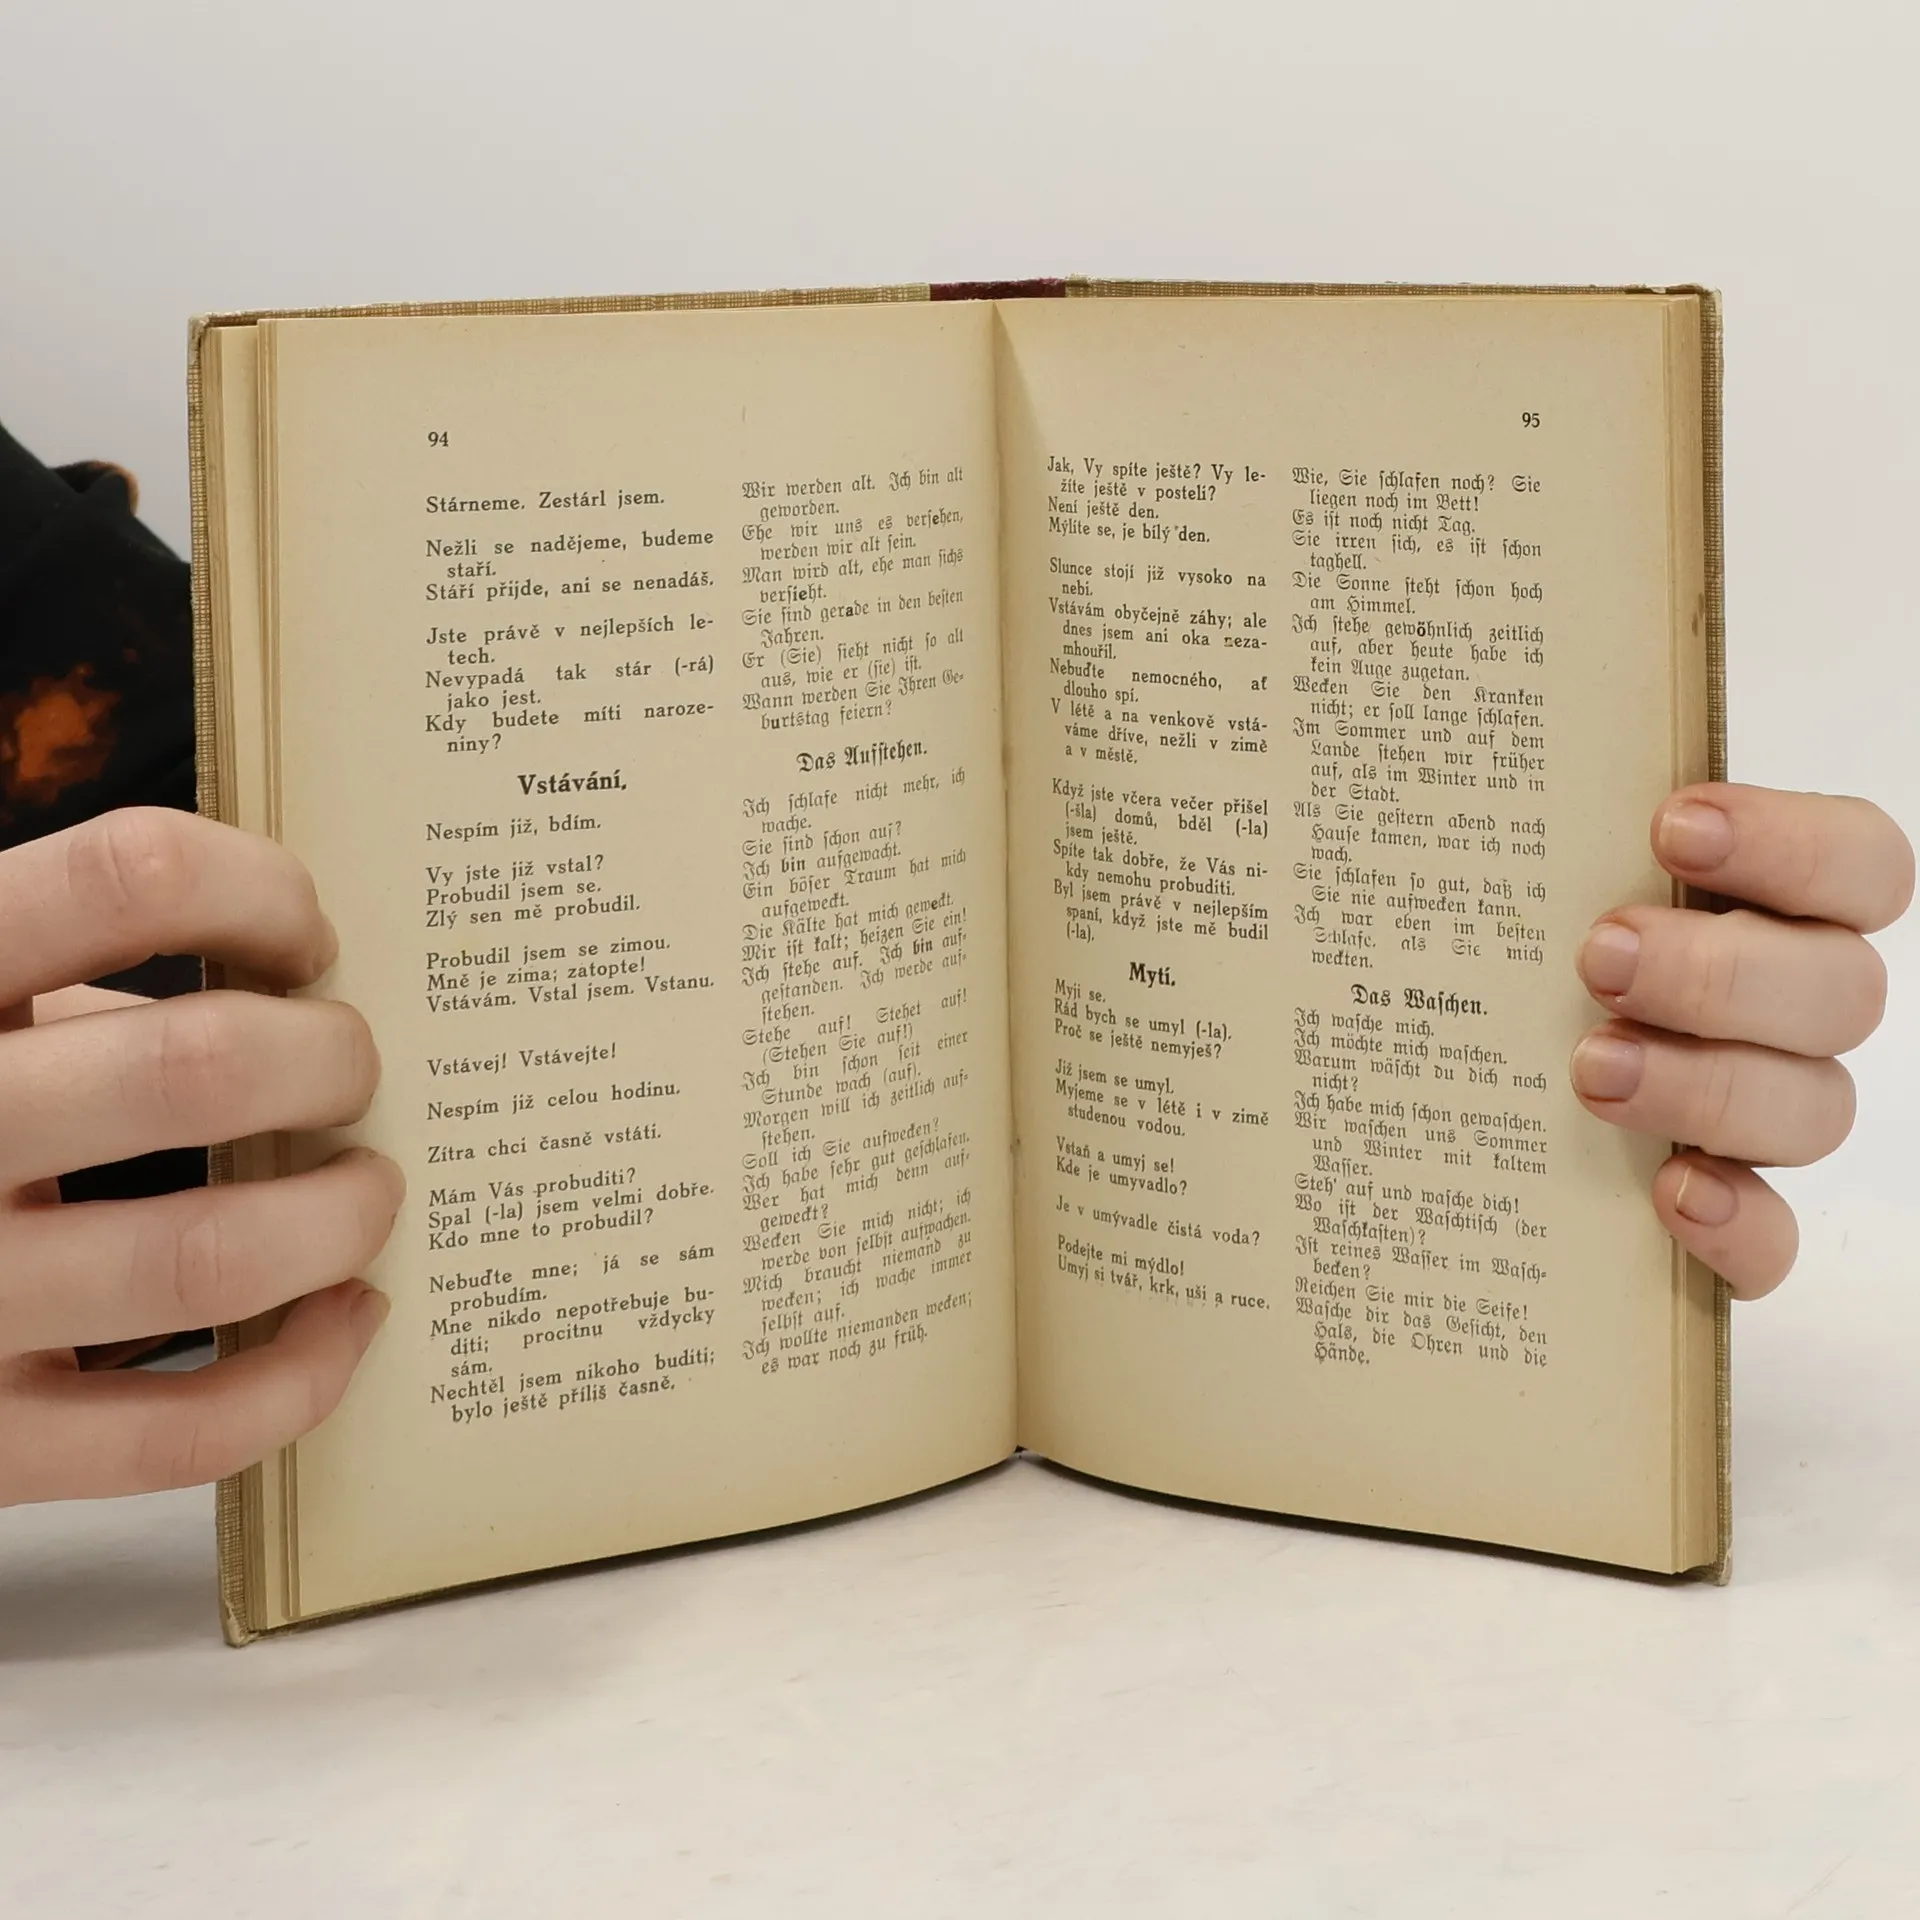 94
Stárneme. Zestárl jsem.
Nežli se nadějeme, budeme
staří.
Stáří přijde, ani se nenadáš.
Jste právě v nejlepších le-
tech.
Nevypadá tak stár (-rá)
jako jest.
Kdy budete míti naroze-
niny?
Vstávání.
Nespím již, bdím.
Vy jste již vstal?
Probudil jsem se.
Zlý sen mě probudil.
Probudil jsem se zimou.
Mně je zima; zatopte!
Vstávám. Vstal jsem. Vstanu.
Vstávej! Vstávejte!
Nespím již celou hodinu.
Zítra chci časně vstáti.
Mám Vás probuditi?
Spal (-la) jsem velmi dobře.
Kdo mne to probudil?
Nebuďte mne; já se sám
probudím.
Mne nikdo nepotřebuje bu-
diti; procitnu vždycky
sám.
Nechtěl jsem nikoho buditi;
bylo ještě příliš časně.
Wir werden alt. Ich bin alt
geworden.
Ehe wir uns es versehen,
werden wir alt sein.
Man wird alt, ehe man sichs
versieht.
Sie sind gerade in den besten
Jahren.
Er (Sie) sieht nicht so alt
aus, wie er (sie) ist.
Wann werden Sie Ihren Ge-
burtstag feiern?
Das Aufstehen.
Ich schlafe nicht mehr, ich
wache.
Sie sind schon auf?
Ich bin aufgewacht.
Ein böser Traum hat mich
aufgeweckt.
Die Kälte hat mich geweckt.
Mir ist kalt; heizen Sie ein!
Ich stehe auf. Ich bin auf-
gestanden. Ich werde auf-
stehen.
Stehe auf! Stehet auf!
(Stehen Sie auf!)
Ich bin schon seit einer
Stunde wach (auf).
Morgen will ich zeitlich auf-
stehen.
Soll ich Sie aufwecken?
Ich habe sehr gut geschlafen.
Wer hat mich denn auf-
geweckt?
Wecken Sie mich nicht; ich
werde von selbst aufwachen.
Mich braucht niemand zu
wecken; ich wache immer
selbst auf.
Ich wollte niemanden wecken;
es war noch zu früh.
95
Jak, Vy spíte ještě? Vy le-
žíte ještě v posteli?
Není ještě den.
Mýlíte se, je bílý den.
Slunce stojí již vysoko na
nebi.
Vstávám obyčejně záhy; ale
dnes jsem ani oka neza-
mhouřil.
Nebuďte nemocného, ať
dlouho spí.
V létě a na venkově vstá-
váme dříve, nežli v zimě
a v městě.
Když jste včera večer přišel
(-šla) domů, bděl (-la)
jsem ještě.
Spíte tak dobře, že Vás ni-
kdy nemohu probuditi.
Byl jsem právě v nejlepším
spaní, když jste mě budil
(-la).
Mytí.
Myji se.
Rád bych se umyl (-la).
Proč se ještě nemyješ?
Již jsem se umyl.
Myjeme se v létě i v zimě
studenou vodou.
Vstaň a umyj se!
Kde je umyvadlo?
Je v umývadle čistá voda?
Podejte mi mýdlo!
Umyj si tvář, krk, uši a ruce.
Wie, Sie schlafen noch? Sie
liegen noch im Bett!
Es ist noch nicht Tag.
Sie irren sich, es ist schon
taghell.
Die Sonne steht schon hoch
am Himmel.
Ich stehe gewöhnlich zeitlich
auf, aber heute habe ich
kein Auge zugetan.
Wecken Sie den Kranken
nicht; er soll lange schlafen.
Im Sommer und auf dem
Lande stehen wir früher
auf, als im Winter und in
der Stadt.
Als Sie gestern abend nach
Hause kamen, war ich noch
wach.
Sie schlafen so gut, daß ich
Sie nie aufwecken kann.
Ich war eben im besten
Schlafe, als Sie mich
weckten.
Das Waschen.
Ich wasche mich.
Ich möchte mich waschen.
Warum wäscht du dich noch
nicht?
Ich habe mich schon gewaschen.
Wir waschen uns Sommer
und Winter mit kaltem
Wasser.
Steh' auf und wasche dich!
Wo ist der Waschtisch (der
Waschkasten)?
Ist reines Wasser im Wasch-
becken?
Reichen Sie mir die Seife!
Wasche dir das Gesicht, den
Hals, die Ohren und die
Hände.